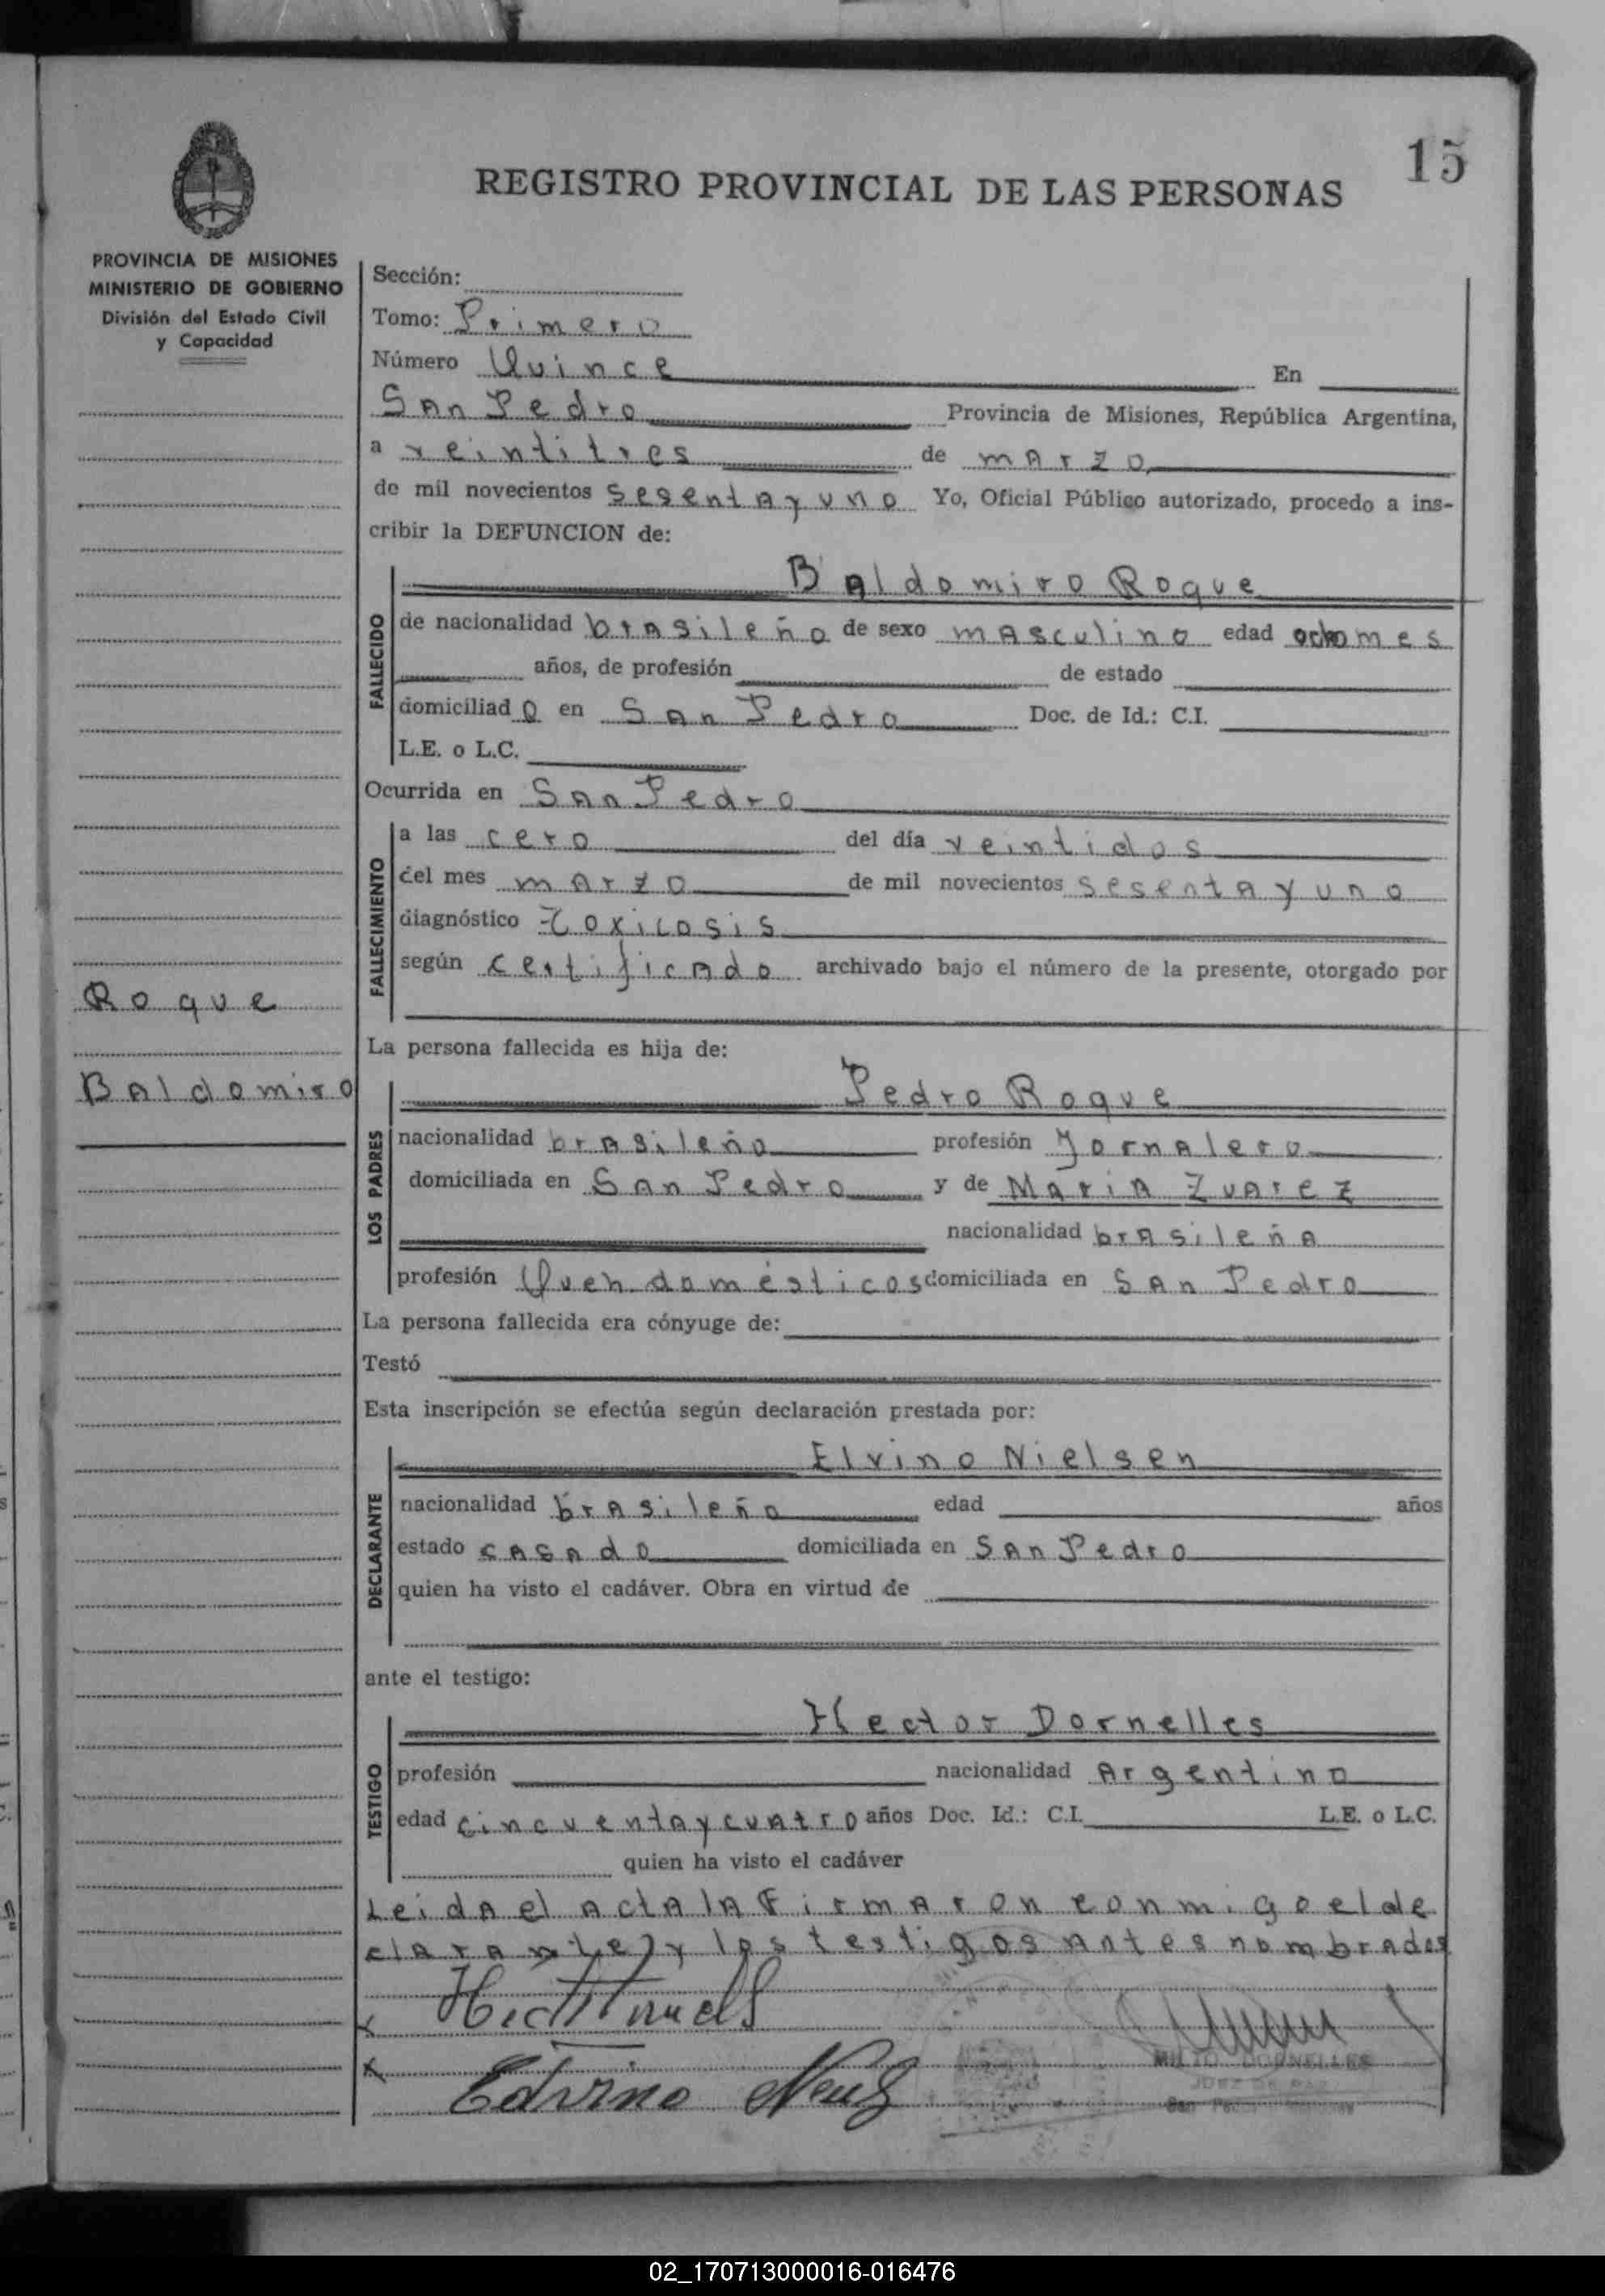 15
REGISTRO PROVINCIAL DE LAS PERSONAS
PROVINCIA DE MISIONES
MINISTERIO DE GOBIERNO
División del Estado Civil
y Capacidad
Roque
Baldomiro
Sección:
Tomo: Primero
Número Quince En
San Pedro Provincia de Misiones, República Argentina,
a veintitres de marzo
de mil novecientos sesenta y uno Yo, Oficial Público autorizado, procedo a ins-
cribir la DEFUNCION de:
FALLECIDO
Baldomiro Roque
de nacionalidad brasileño de sexo masculino edad ocho mes
años, de profesión de estado
domiciliado en San Pedro Doc. de Id.: C.I.
L.E. o L.C.
Ocurrida en San Pedro
FALLECIMIENTO
a las cero del día veintidos
del mes marzo de mil novecientos sesenta y uno
diagnóstico toxicosis
según certificado archivado bajo el número de la presente, otorgado por
La persona fallecida es hija de:
LOS PADRES
Pedro Roque
nacionalidad brasileño profesión Jornalero
domiciliada en San Pedro y de Maria Zuarez
nacionalidad brasileña
profesión Queh. domésticos domiciliada en San Pedro
La persona fallecida era cónyuge de:
Testó
Esta inscripción se efectúa según declaración prestada por:
DECLARANTE
Elvino Nielsen
nacionalidad brasileño edad años
estado casado domiciliada en San Pedro
quien ha visto el cadáver. Obra en virtud de
ante el testigo:
TESTIGO
Hector Dornelles
profesión nacionalidad Argentino
edad cincuenta y cuatro años Doc. Id.: C.I. L.E. o L.C.
quien ha visto el cadáver
Leida el acta la Firmaron conmigo el de
clarante) y los testigos antes nombrados
x
x Edvino
DORNELLES
JUEZ DE PAZ
02_170713000016-016476